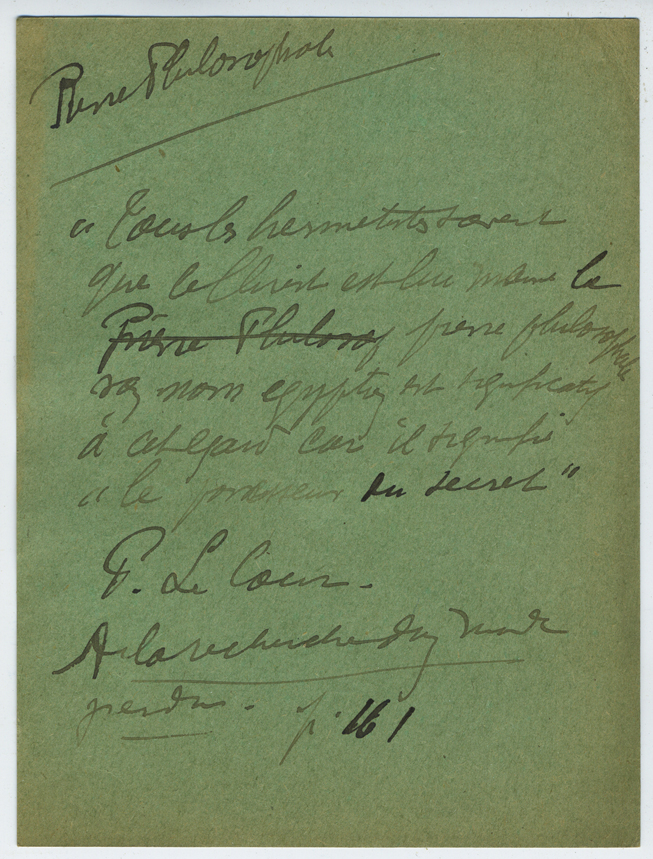 Pierre Philosophale
"Tous les hermetistes savent
que le Christ est lui meme la
Pierre Philosop pierre philosophale
son nom egyptien est significatif
à cet egard car il signifie
"le possesseur du secret"
P. Le Cour.
A la recherche d'un monde
perdu. p. 161